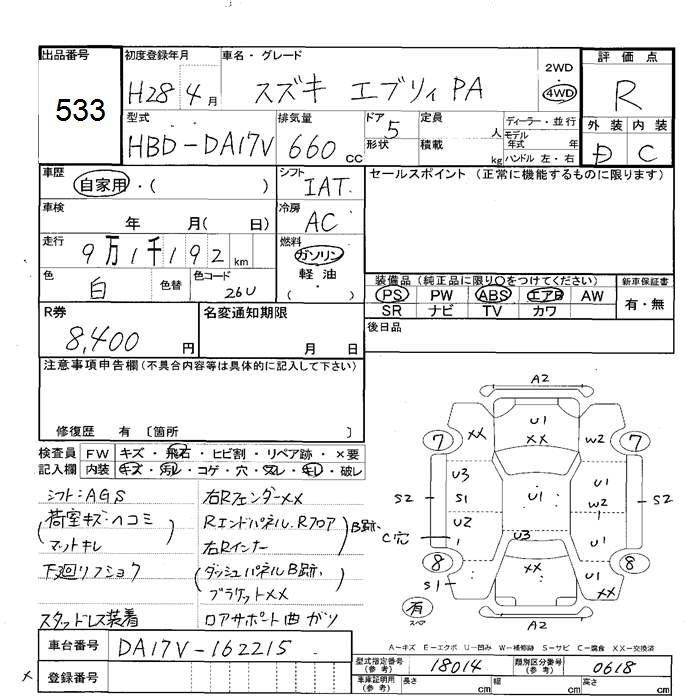 出品番号 初度登録年月 車名・グレード 評価点
533 H28年4月 スズキ エブリィ PA 2WD 4WD R
型式 排気量 ドア 定員 ディーラー・並行 外装 内装
HBD-DA17V 660cc 5 形状 積載 人 kg モデル年式 年 ハンドル 左・右 D C
車歴 シフト セールスポイント (正常に機能するものに限ります)
自家用・( ) IAT
車検 冷房
年 月( 日) AC
走行 燃料
9万1千192km ガソリン
色 色替 色コード 軽油
白 26U ( )
装備品 (純正品に限り○をつけてください) 新車保証書
PS PW ABS エアB AW 有・無
SR ナビ TV カワ
R券 名変通知期限 後日品
8,400円 月 日
注意事項申告欄(不具合内容等は具体的に記入して下さい)
修復歴 有 〔箇所 〕
検査員 FW キズ・飛石・ヒビ割・リペア跡・×要
記入欄 内装 キズ・汚レ・コゲ・穴・スレ・キレ・破レ
シフト:AGS 右Rフェンダー××
(荷室キズ・ヘコミ Rエンドパネル.Rフロア)B跡.
マットキレ 右Rインナー
下廻リフショク (ダッシュパネルB跡.
ブラケット××
スタッドレス装着 ロアサポート曲ガリ
A2
7 XX U1 XX W2 7
S2 U3 S1 U1 U1 W2 S2
C穴 U2 1 U3 U1
8 S1 XX U1 XX 8
有 スペア A2
A-キズ E-エクボ U-凹み W-補修跡 S-サビ C-腐食 XX-交換済
車台番号 DA17V-162215
登録番号
×
型式指定番号(参考) 18014 類別区分番号(参考) 0618
車庫証明用(参考) 長さ cm 幅 cm 高さ cm